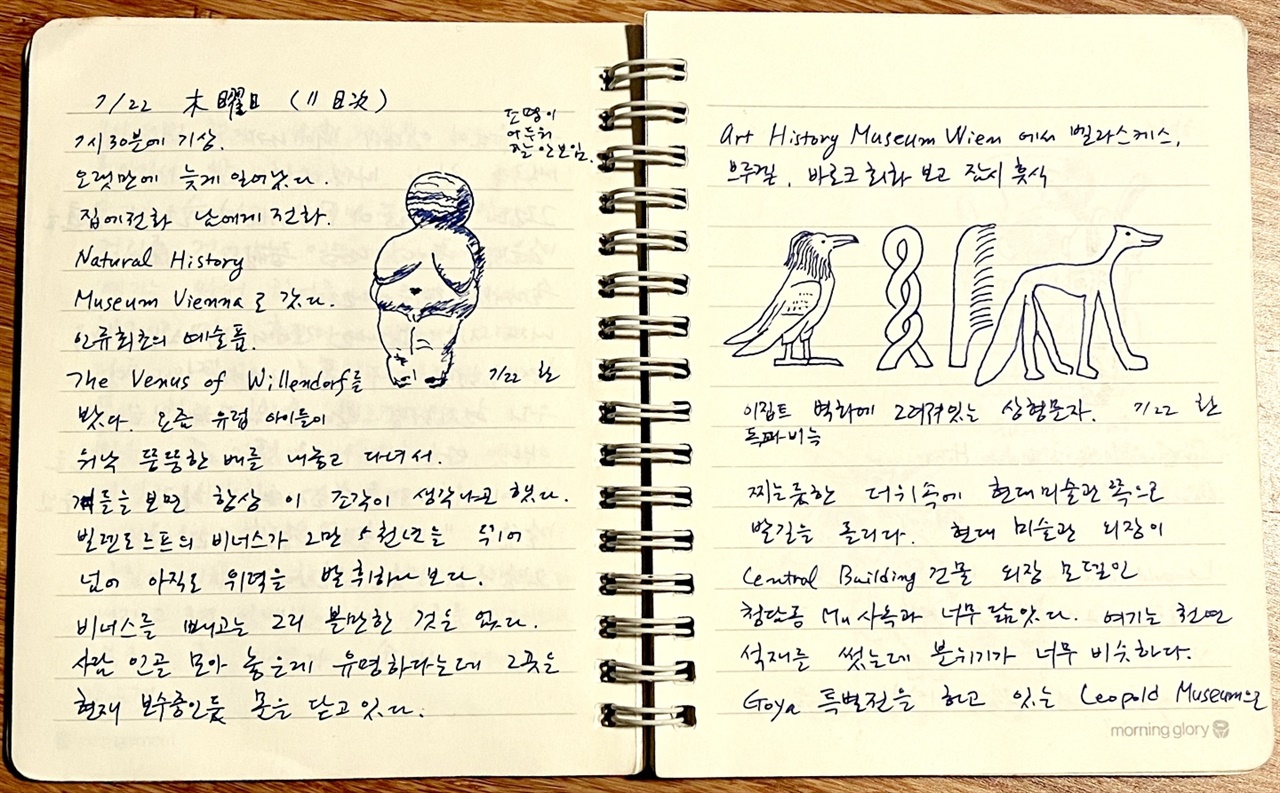 7/22 木曜日 (11日次)
조명이
어두워
잘 안보임.
7시 30분에 기상.
오랫만에 늦게 일어났다.
집에 전화 남에게 전화.
Natural History
Museum Vienna로 갔다.
인류최초의 예술품.
The Venus of Willendorf를
7/22 환
봤다. 요즘 유럽 아이들이
워낙 뚱뚱한 배를 내놓고 다녀서.
걔들을 보면 항상 이 조각이 생각나곤 했다.
빌렌도르프의 비너스가 2만 5천년을 뛰어
넘어 아직도 위력을 발휘하나 보다.
비너스를 빼고는 그리 볼만한 것은 없다.
사람 인골 모아 놓은게 유명하다는데 그곳은
현재 보수중인듯 문을 닫고 있다.
Art History Museum Wien 에서 벨라스케스,
브뤼겔, 바로크 회화 보고 잠시 휴식
이집트 벽화에 그려져있는 상형문자. 7/22 환
찌는듯한 더위속에 현대미술관쪽으로
발길을 돌리다. 현대 미술관 외장이
Central Building 건물 외장 모델인
청담동 Mu사옥과 너무 닮았다. 여기는 천연
석재를 썼는데 분위기가 너무 비슷하다.
Goya 특별전을 하고 있는 Leopold Museum으로
morning glory